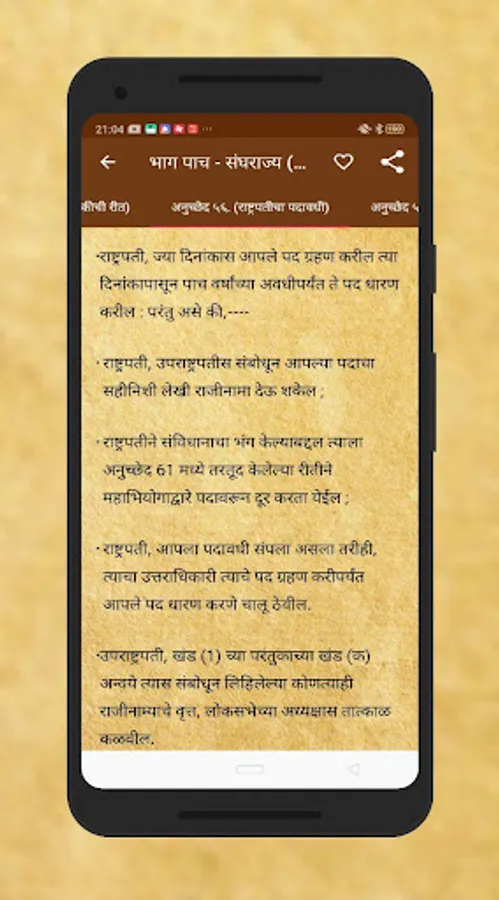 21:04
भाग पाच - संघराज्य (...
कीची रीत) अनुच्छेद ५६. (राष्ट्रपतीचा पदावधी) अनुच्छेद ५
·राष्ट्रपती, ज्या दिनांकास आपले पद ग्रहण करील त्या
दिनांकापासून पाच वर्षांच्या अवधीपर्यंत ते पद धारण
करील : परंतु असे की,----
· राष्ट्रपती, उपराष्ट्रपतीस संबोधून आपल्या पदाचा
सहीनिशी लेखी राजीनामा देऊ शकेल ;
· राष्ट्रपतीने संविधानाचा भंग केल्याबद्दल त्याला
अनुच्छेद 61 मध्ये तरतूद केलेल्या रीतीने
महाभियोगाद्वारे पदावरून दूर करता येईल ;
· राष्ट्रपती, आपला पदावधी संपला असला तरीही,
त्याचा उत्तराधिकारी त्याचे पद ग्रहण करीपर्यंत
आपले पद धारण करणे चालू ठेवील.
·उपराष्ट्रपती, खंड (1) च्या परंतुकाच्या खंड (क)
अन्वये त्यास संबोधून लिहिलेल्या कोणत्याही
राजीनाम्याचे वृत्त, लोकसभेच्या अध्यक्षास तात्काळ
कळवील.